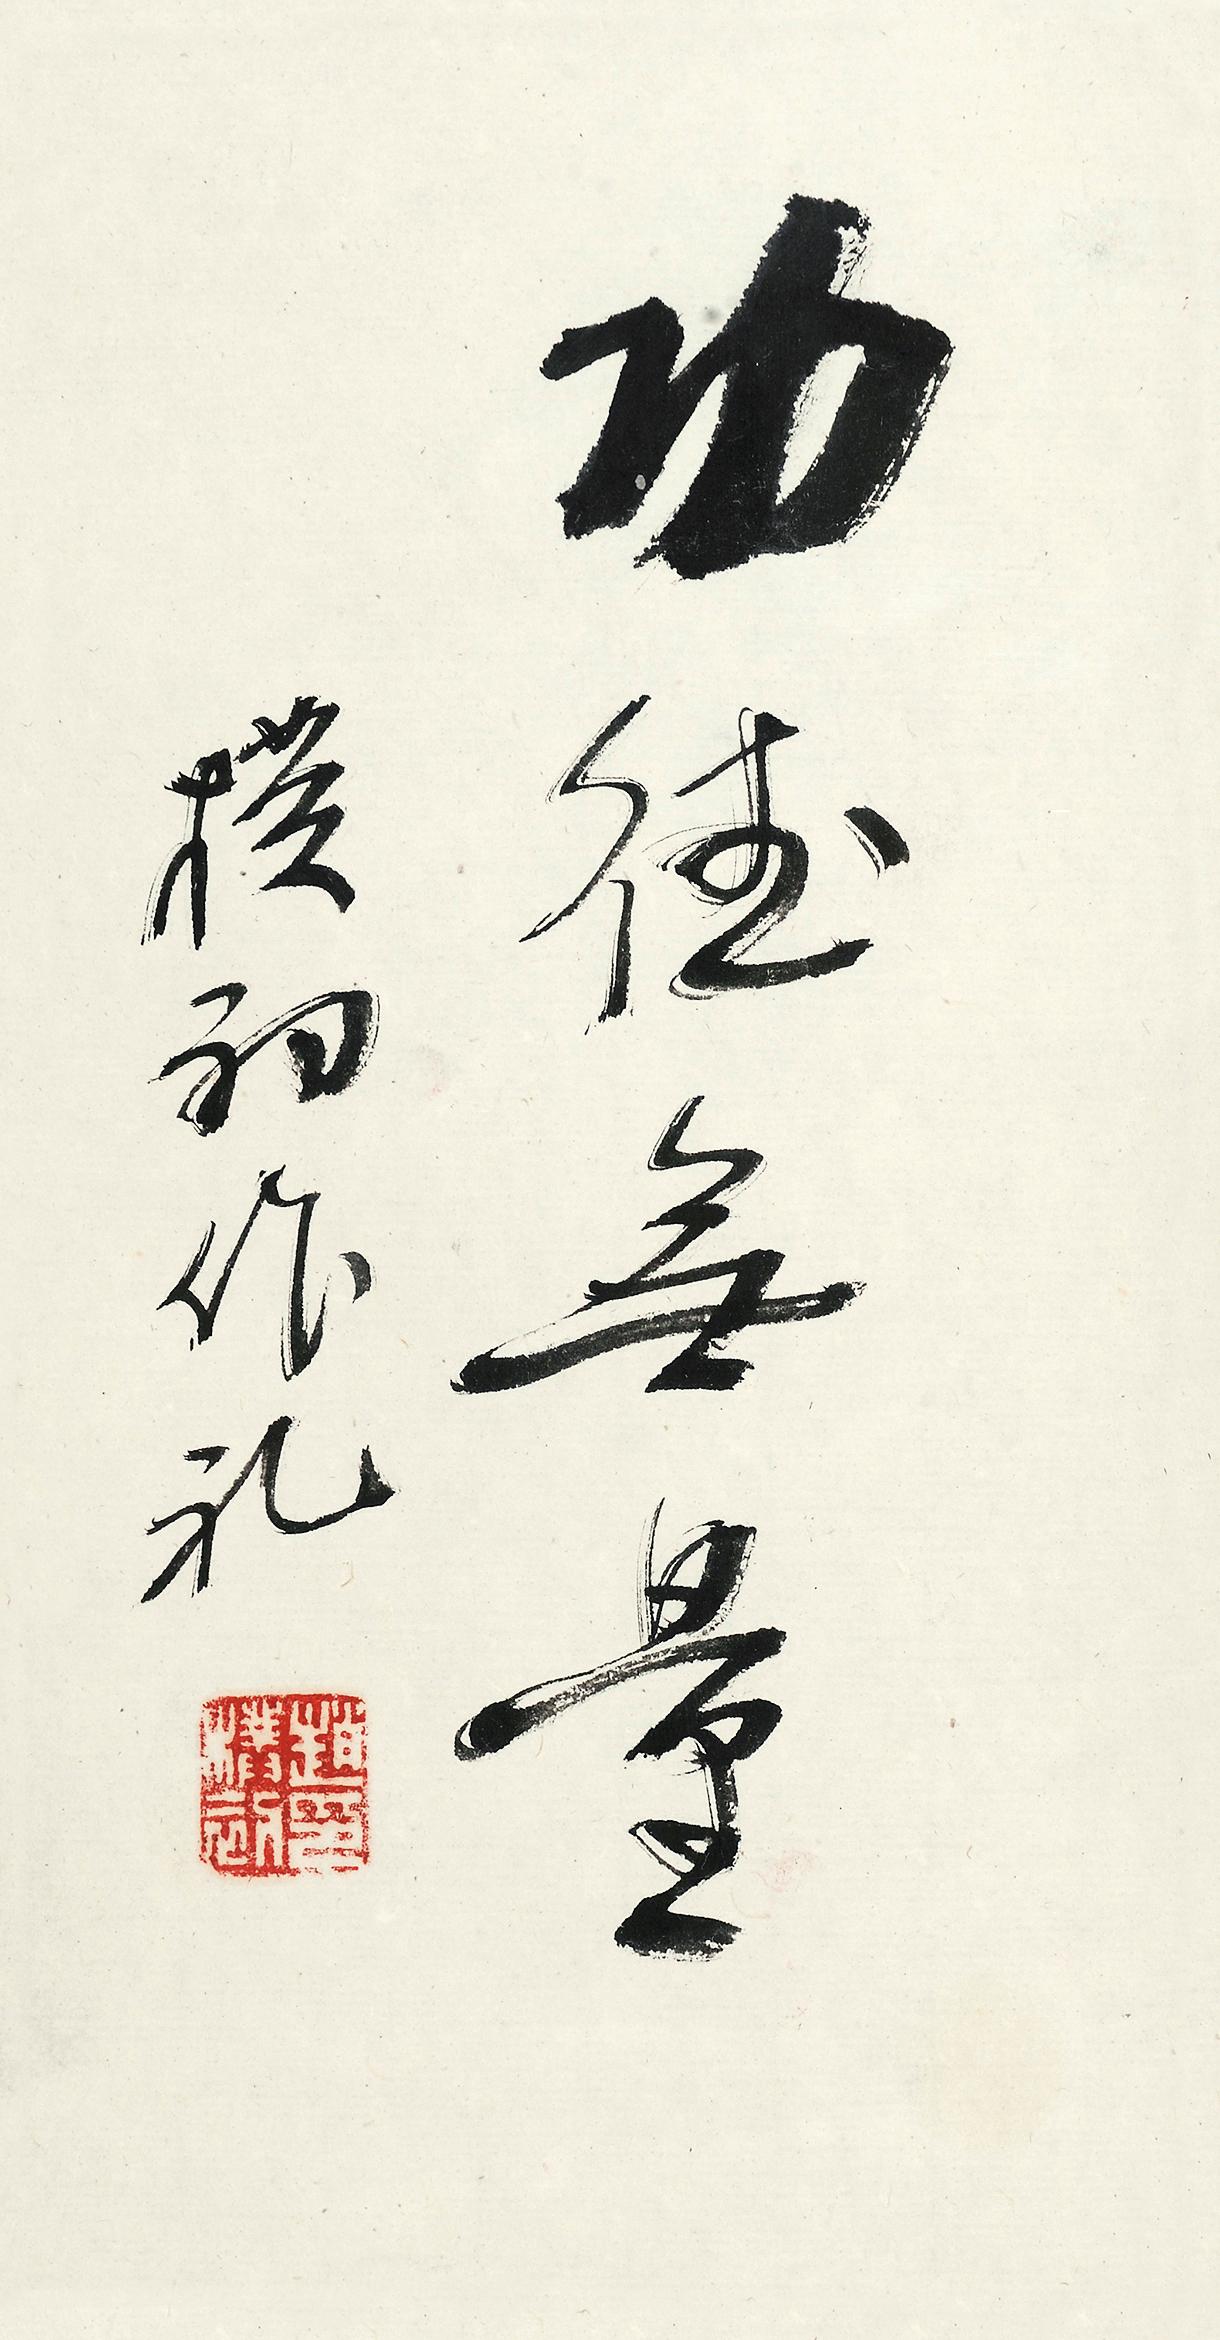 功德無量
樸初作礼
趙樸初印